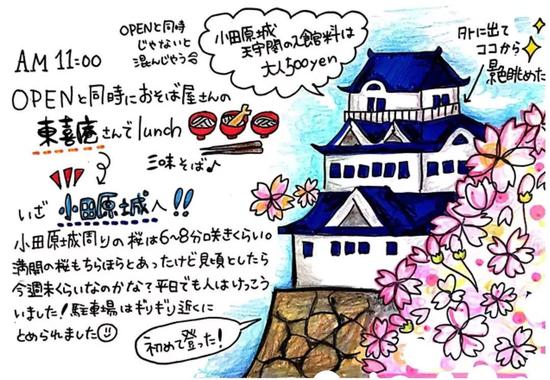 AM 11:00
OPENと同時
じゃないと
混んじゃう
OPENと同時におそば屋さんの
東喜庵さんでlunch
三味そば♪
いざ 小田原城へ!!
小田原城周りの桜は6~8分咲きくらい
満開の桜もちらほらとあったけど見頃としたら
今週末くらいなのかな?平日でも人はけっこう
いました!駐車場はギリギリ近くに
とめられました
初めて登った!
小田原城
天守閣の入館料は
大人500yen
外に出て
ココから
眺めた